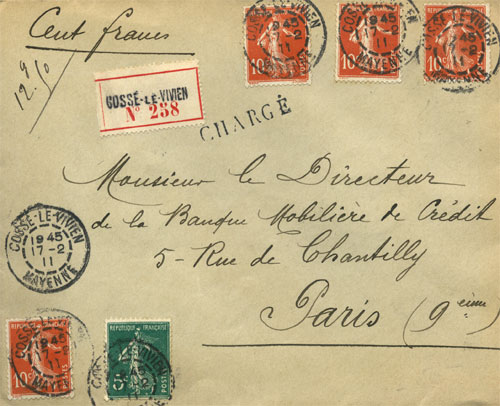 Cent francs
9
12.10
COSSÉ-LE-VIVIEN
Nº 258
CHARGÉ
COSSÉ-LE-VIVIEN
19 45
17-2
11
MAYENNE
10c
10c
10c
Monsieur le Directeur
de la Banque Mobilière de Crédit
5 - Rue de Chantilly
Paris (9eième)
COSSÉ-LE-VIVIEN
19 45
17-2
11
MAYENNE
REPUBLIQUE FRANÇAISE
10c
POSTES
REPUBLIQUE FRANÇAISE
5c
POSTES